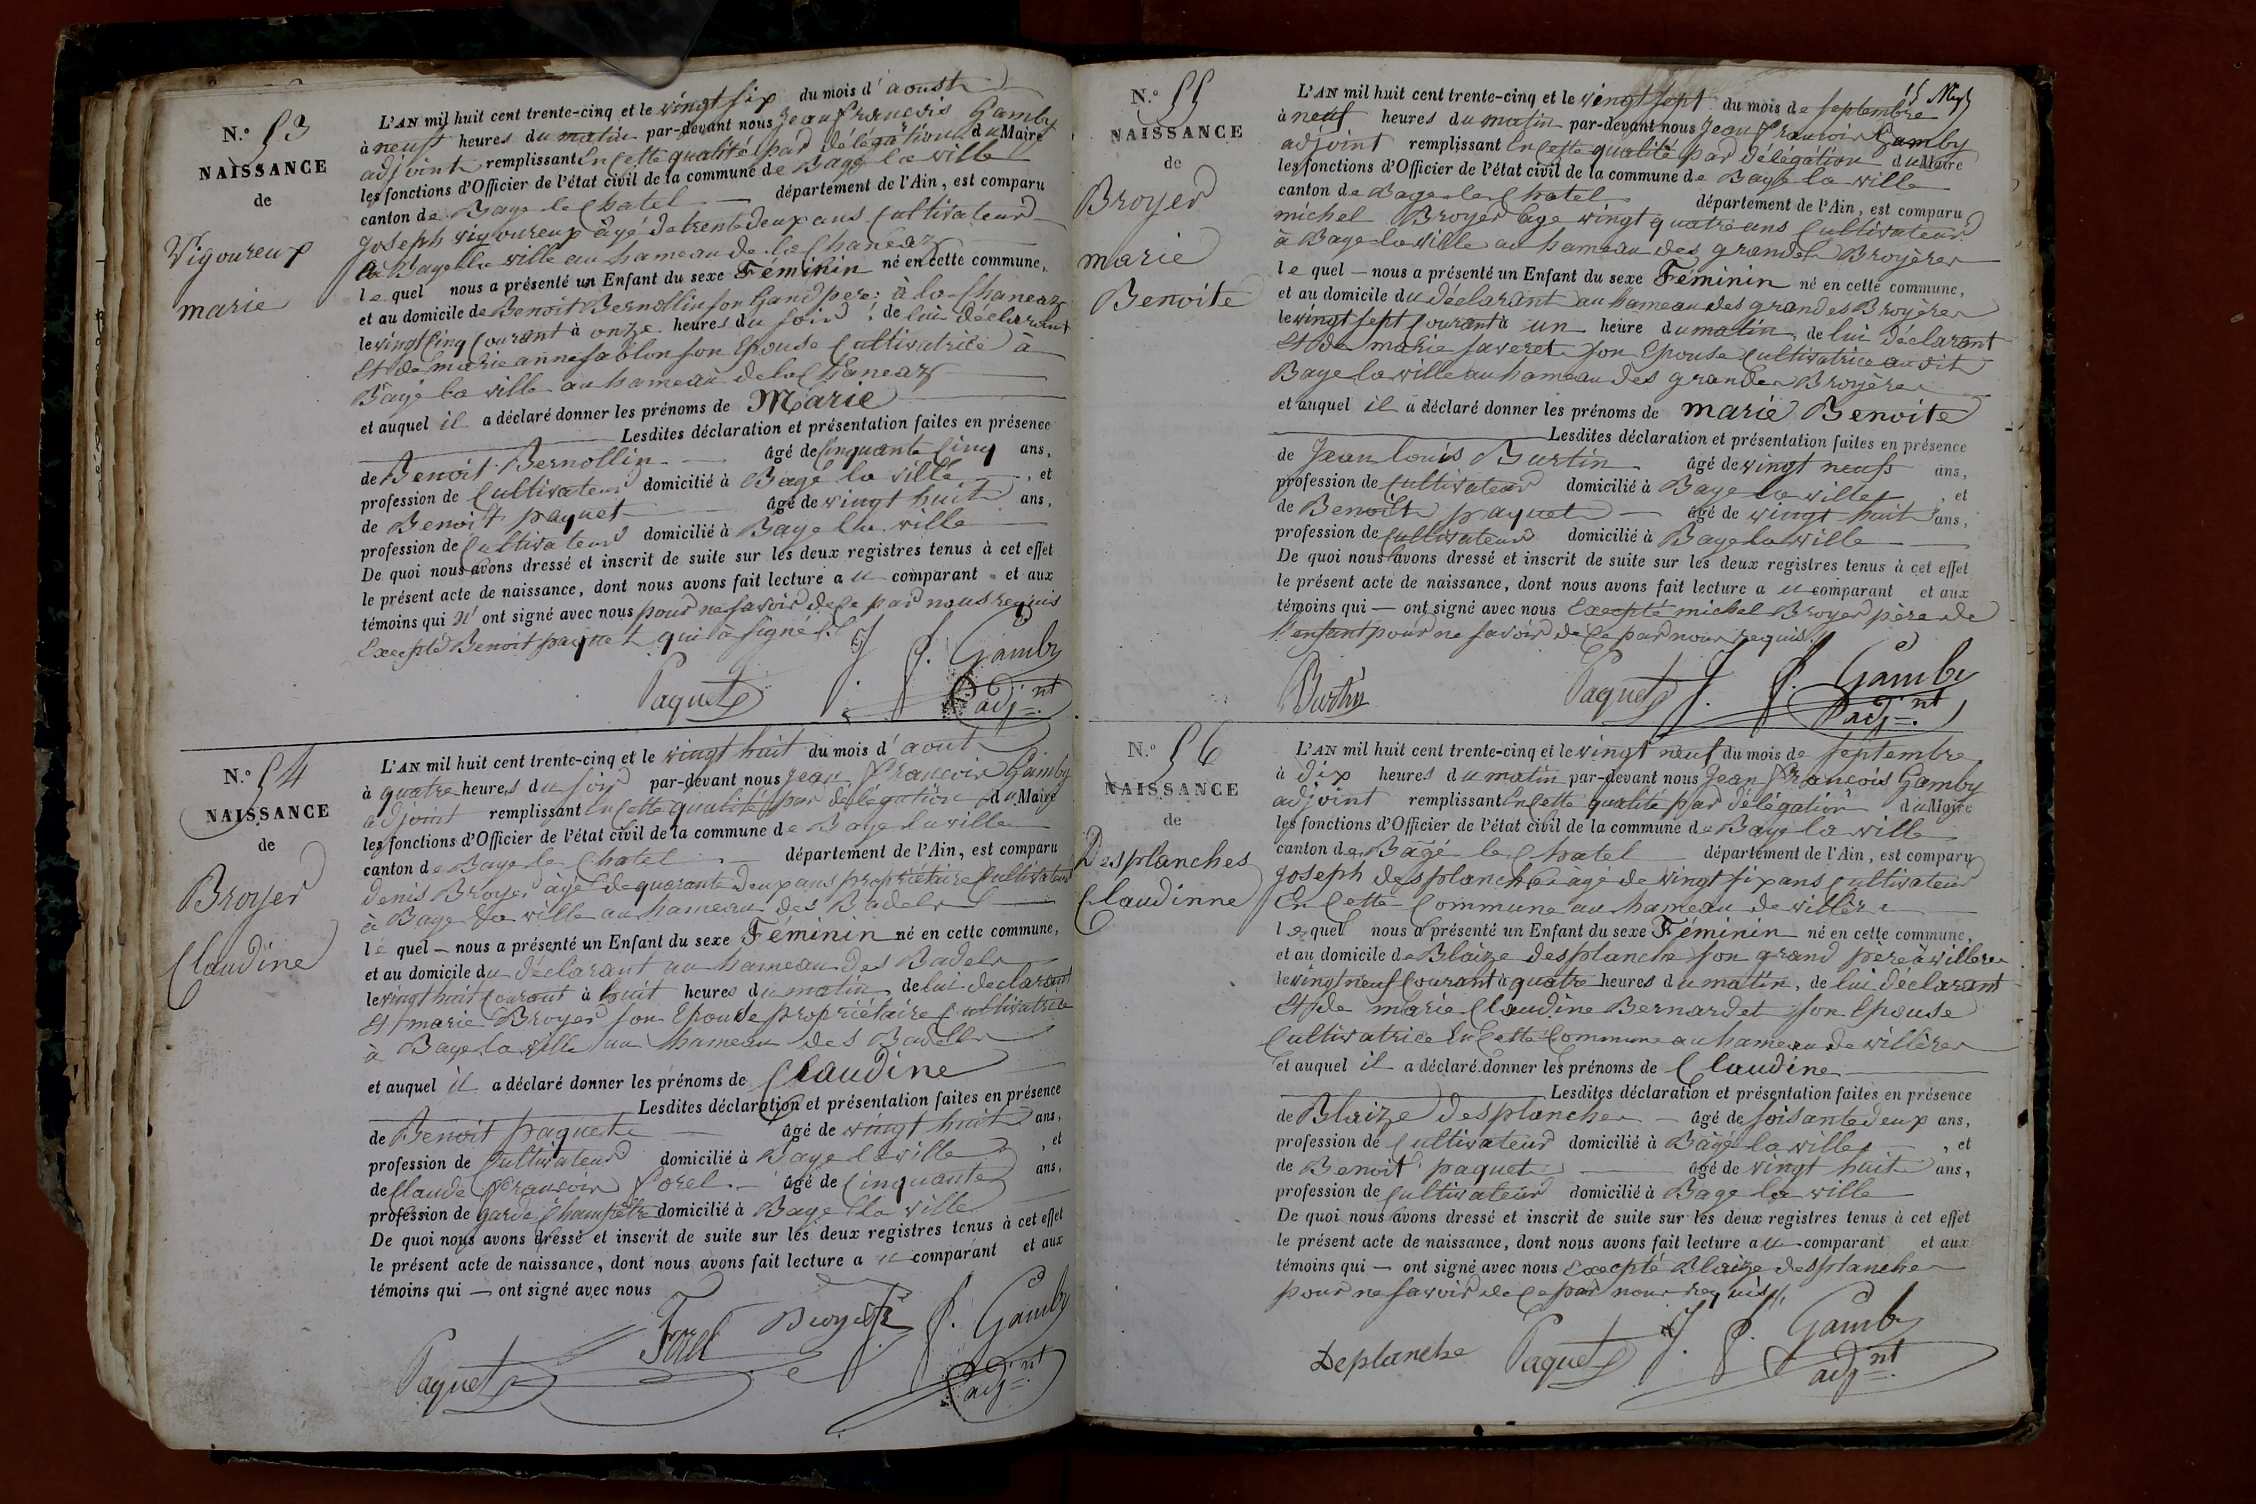 N.° 53
NAISSANCE
de
Vigoureux
marie
L'AN mil huit cent trente-cinq et le vingt six du mois d'aoust
à neuf heures du matin par-devant nous Jean François Gamby
adjoint remplissant en cette qualité par délégation du Maire
les fonctions d'Officier de l'état civil de la commune de Bagé la ville
canton de Bage le Chatel département de l'Ain, est comparu
Joseph Vigoureux âgé de trente deux ans Cultivateur
à Bage la ville au hameau de la Chaneaz
le quel nous a présenté un Enfant du sexe Féminin né en cette commune,
et au domicile de Benoit Bernollin son Gand pere à la Chaneaz
le vingt cinq Courant à onze heures du soir, de lui déclarant
Et de marie anne sablon son Epouse Cultivatrice à
Bagé la ville au hameau de la Chaneaz
et auquel il a déclaré donner les prénoms de Marie
Lesdites déclaration et présentation faites en présence
de Benoit Bernollin âgé de Cinquante Cinq ans,
profession de Cultivateur domicilié à Bagé la ville, et
de Benoit paquet âgé de vingt huit ans,
profession de Cultivateur domicilié à Bage la ville
De quoi nous avons dressé et inscrit de suite sur les deux registres tenus à cet effet
le présent acte de naissance, dont nous avons fait lecture au comparant et aux
témoins qui n'ont signé avec nous pour ne savoir de ce par nous requis
Excepté Benoit paquet qui a signé
Paquet J. f. Gamby
adj.nt
N.° 54
NAISSANCE
de
Broyer
Claudine
L'AN mil huit cent trente-cinq et le vingt huit du mois d'aout
à quatre heures du soir par-devant nous Jean François Gamby
adjoint remplissant en cette qualité par délégation du Maire
les fonctions d'Officier de l'état civil de la commune de Bage la ville
canton de Bage le Chatel département de l'Ain, est comparu
denis Broyer âgé de quarante deux ans propriétaire Cultivateur
à Bage la ville au hameau des Badels
le quel nous a présenté un Enfant du sexe Féminin né en cette commune,
et au domicile du déclarant au hameau des Badels
le vingt huit Courant à huit heures du matin, de lui declarant
Et marie Broyer son Epouse propriétaire Cultivatrice
à Bage la ville au hameau des Badels
et auquel il a déclaré donner les prénoms de Claudine
Lesdites déclaration et présentation faites en présence
de Benoit paquet âgé de vingt huit ans,
profession de Cultivateur domicilié à Bage la ville, et
de Claude François forel âgé de Cinquante ans,
profession de garde Champêtre domicilié à Bage la ville
De quoi nous avons dressé et inscrit de suite sur les deux registres tenus à cet effet
le présent acte de naissance, dont nous avons fait lecture au comparant et aux
témoins qui ont signé avec nous
Paquet Forel Broyer J. f. Gamby
adj.nt
N.° 55
NAISSANCE
de
Broyer
marie
Benoite
L'AN mil huit cent trente-cinq et le vingt sept du mois de septembre
à neuf heures du matin par-devant nous Jean François Gamby
adjoint remplissant en cette qualité par délégation du Maire
les fonctions d'Officier de l'état civil de la commune de Bagé la ville
canton de Bage le Chatel département de l'Ain, est comparu
michel Broyer âge vingt quatre ans Cultivateur
à Bage la ville au hameau des grandes Broyères
le quel nous a présenté un Enfant du sexe Féminin né en cette commune,
et au domicile du déclarant au hameau des grandes Broyères
le vingt sept Courant à un heure du matin, de lui déclarant
Et de marie faveret son Epouse Cultivatrice audit
Bage la ville au hameau des grandes Broyères
et auquel il a déclaré donner les prénoms de marie Benoite
Lesdites déclaration et présentation faites en présence
de Jean louis Burtin âgé de vingt neuf ans,
profession de Cultivateur domicilié à Bage la ville, et
de Benoit paquet âgé de vingt huit ans,
profession de Cultivateur domicilié à Bage la ville
De quoi nous avons dressé et inscrit de suite sur les deux registres tenus à cet effet
le présent acte de naissance, dont nous avons fait lecture au comparant et aux
témoins qui ont signé avec nous Excepté michel Broyer père de
l'enfant pour ne savoir de ce par nous requis
Burtin Paquet J. f. Gamby
adj.nt
N.° 56
NAISSANCE
de
Desplanches
Claudinne
L'AN mil huit cent trente-cinq et le vingt neuf du mois de septembre
à dix heures du matin par-devant nous Jean François Gamby
adjoint remplissant en cette qualité par délégation du Maire
les fonctions d'Officier de l'état civil de la commune de Bagé la ville
canton de Bâgé le Chatel département de l'Ain, est comparu
Joseph desplanches age de vingt six ans Cultivateur
En Cette Commune au hameau de villère
le quel nous a présenté un Enfant du sexe Féminin né en cette commune,
et au domicile de Blaize desplanche son grand père à villère
le vingt neuf Courant à quatre heures du matin, de lui déclarant
Et de marie Claudine Bernardet son Epouse
Cultivatrice En Cette Commune au hameau de villères
et auquel il a déclaré donner les prénoms de Claudine
Lesdites déclaration et présentation faites en présence
de Blaize desplanches âgé de soisante deux ans,
profession de Cultivateur domicilié à Bâgé la ville, et
de Benoit paquet âgé de vingt huit ans,
profession de Cultivateur domicilié à Bage la ville
De quoi nous avons dressé et inscrit de suite sur les deux registres tenus à cet effet
le présent acte de naissance, dont nous avons fait lecture au comparant et aux
témoins qui ont signé avec nous Excepté Blaize desplanches
pour ne savoir de ce par nous requis
Deplanche Paquet J. f. Gamby
adj.nt